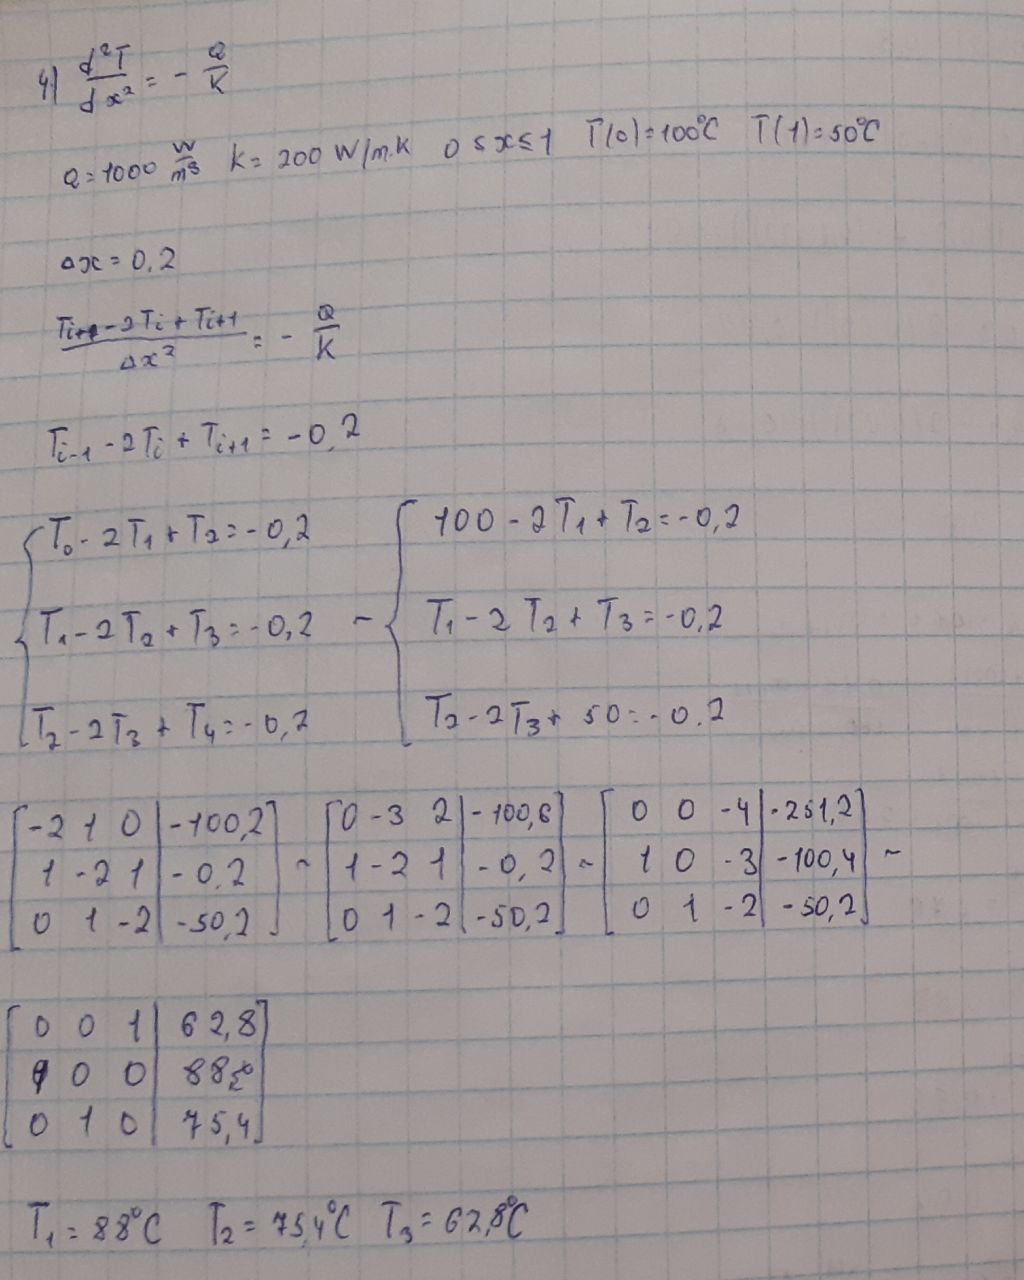 4) d²T/dx² = - Q/K
Q=1000 W/m³ k= 200 W/m.K 0≤x≤1 T(0)=100°C T(1)=50°C
Δx = 0,2
(Ti+1 - 2Ti + Ti+1)/Δx² = - Q/K
Ti-1 - 2Ti + Ti+1 = -0,2
{ T0 - 2T1 + T2 = -0,2 { 100 - 2T1 + T2 = -0,2
T1 - 2T2 + T3 = -0,2 ~ T1 - 2T2 + T3 = -0,2
T2 - 2T3 + T4 = -0,2 T2 - 2T3 + 50 = -0.2
[-2 1 0 | -100,2] [0 -3 2 | -100,6] [0 0 -4 | -251,2]
1 -2 1 | -0,2 ~ 1 -2 1 | -0,2 ~ 1 0 -3 | -100,4 ~
0 1 -2 | -50,2 0 1 -2 | -50,2 0 1 -2 | -50,2
[0 0 1 | 62,8]
1 0 0 | 88
0 1 0 | 75,4
T1 = 88°C T2 = 75,4°C T3 = 62,8°C